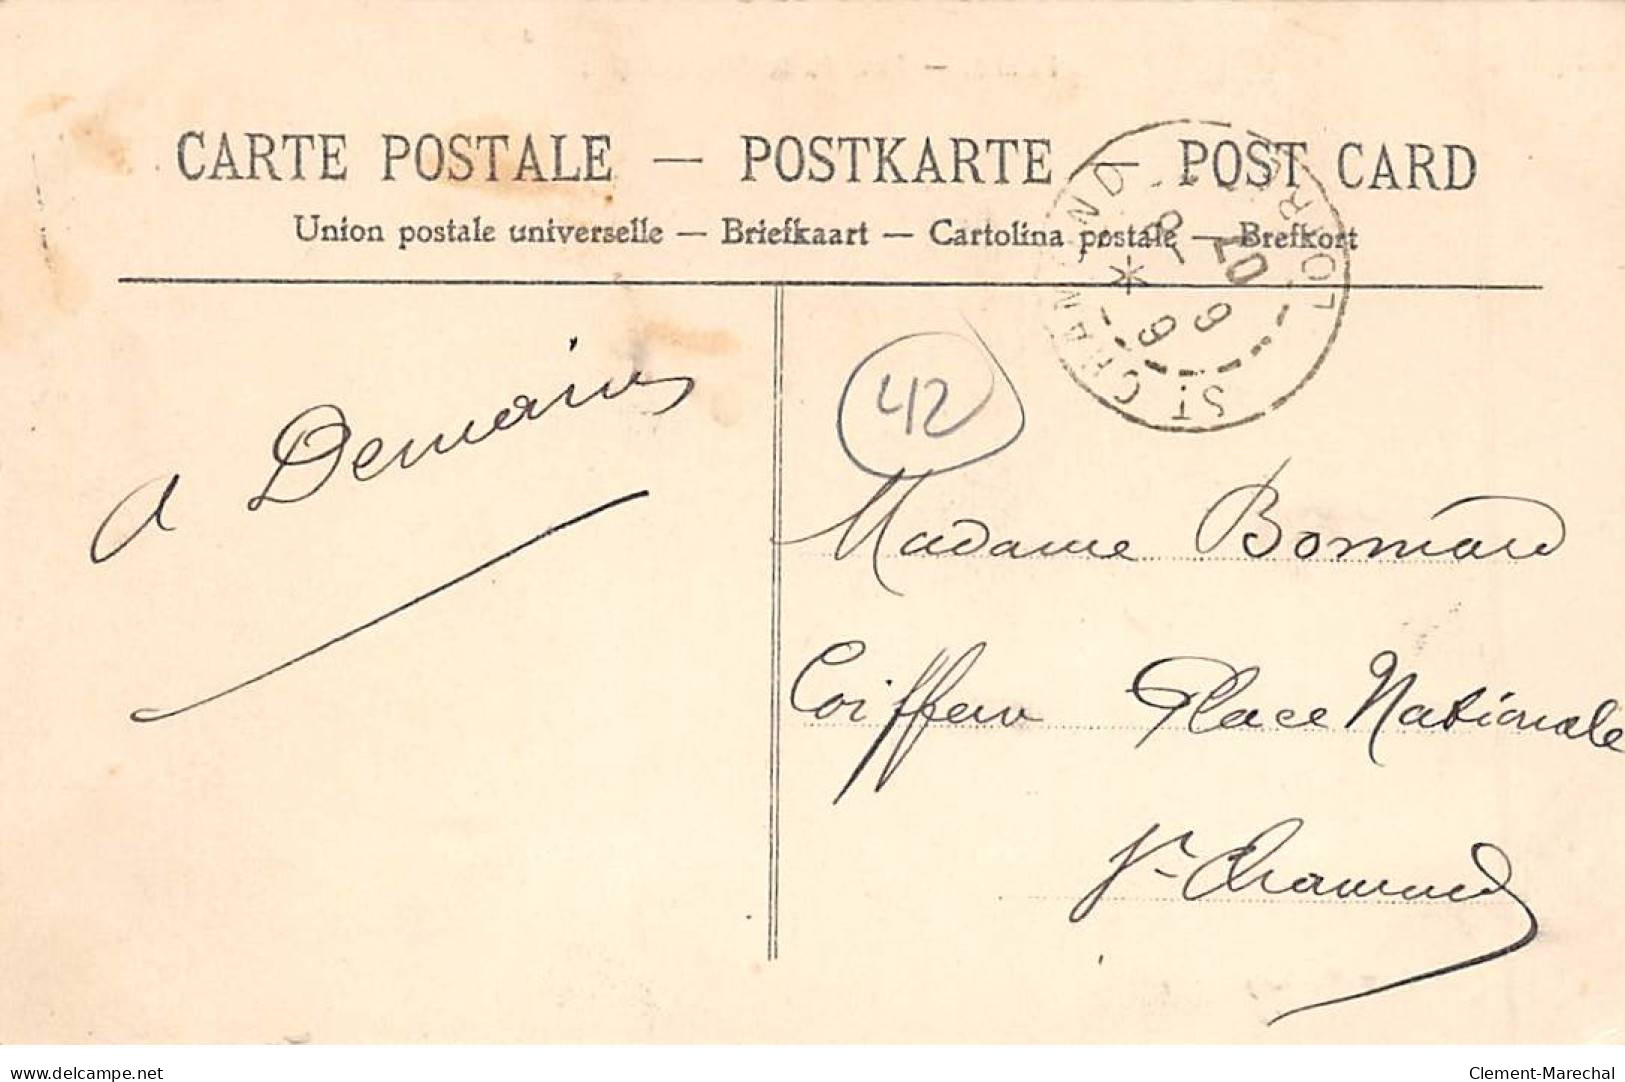 CARTE POSTALE — POSTKARTE — POST CARD
Union postale universelle — Briefkaart — Cartolina postale — Brefkort
ST CHAMOND LOIRE
42
a Demain
Madame Bonnard
Coiffeur Place Nationale
St Chamond
www.delcampe.net
Clement-Marechal